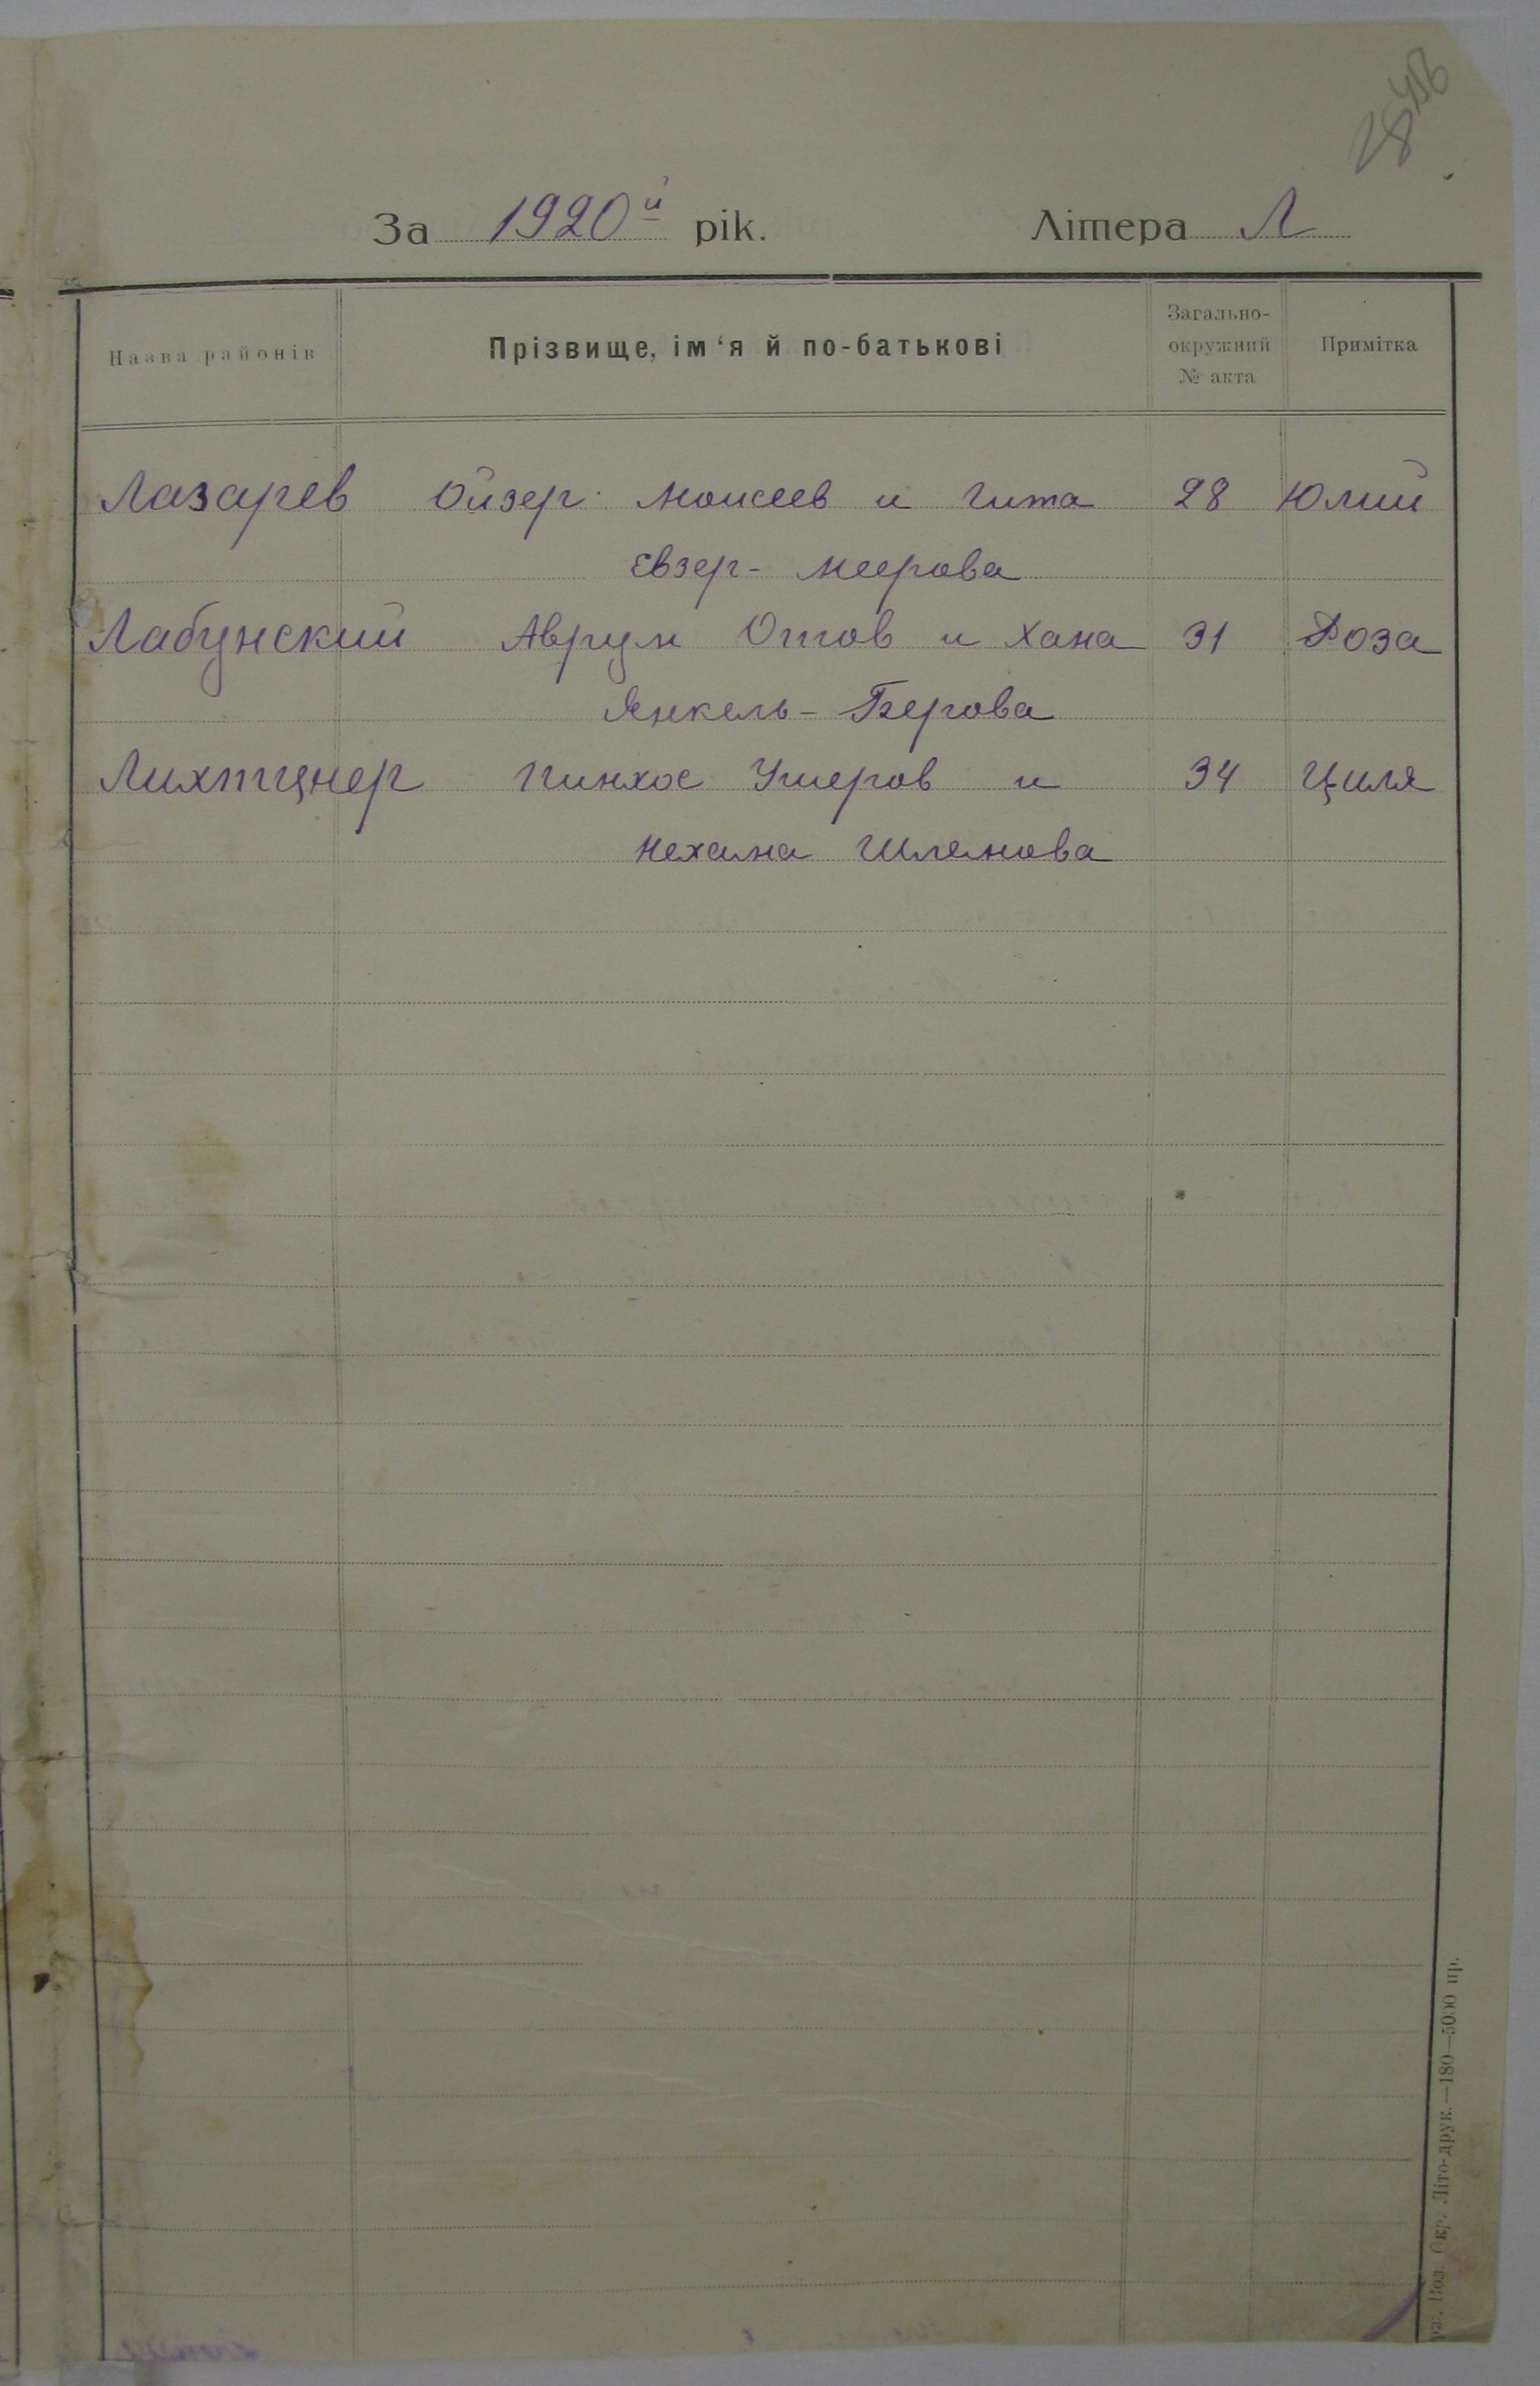 За 1920й рік. Літера Л
Назва районів
Прізвище, ім‘я й по-батькові
Загально-
окружний
№ акта
Примітка
Лазарев Ойзер Моисеев и Гита 28 Юлий
Евзер- Меерова
Лабунский Аврум Оттов и Хана 31 Роза
Янкель- Берова
Лихтцнер Пинхос Ушеров и 34 Циля
Нехама Шлемова
Окр. Літо-друк.—180—5000 пр.